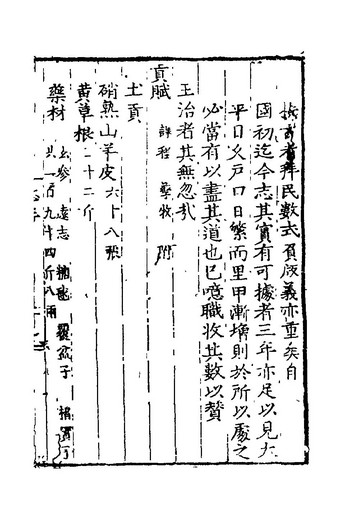 拜民數
國初迄今志其實有可據者三年亦足以見大
平日久戶口日繁而里甲漸增則於所以處之
必當有以盡其道也已噫職收其數以贊
王治者其無忽哉
貢賦
課程 孳牧 附
土貢
硝熟山羊皮六十八張
黃草根二十二斤
藥材
玄參 遠志
覆盆子